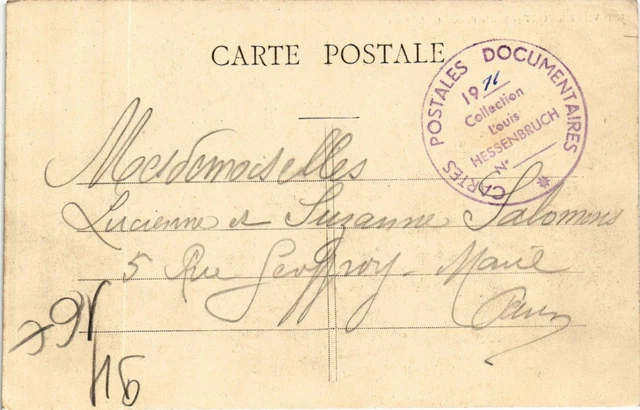 CARTE POSTALE
CARTES POSTALES DOCUMENTAIRES
19
Collection
Louis
HESSENBRUCH
N°
Mesdemoiselles
Lucienne et Suzanne Salomons
5 Rue Geoffroy-Marie
Paris